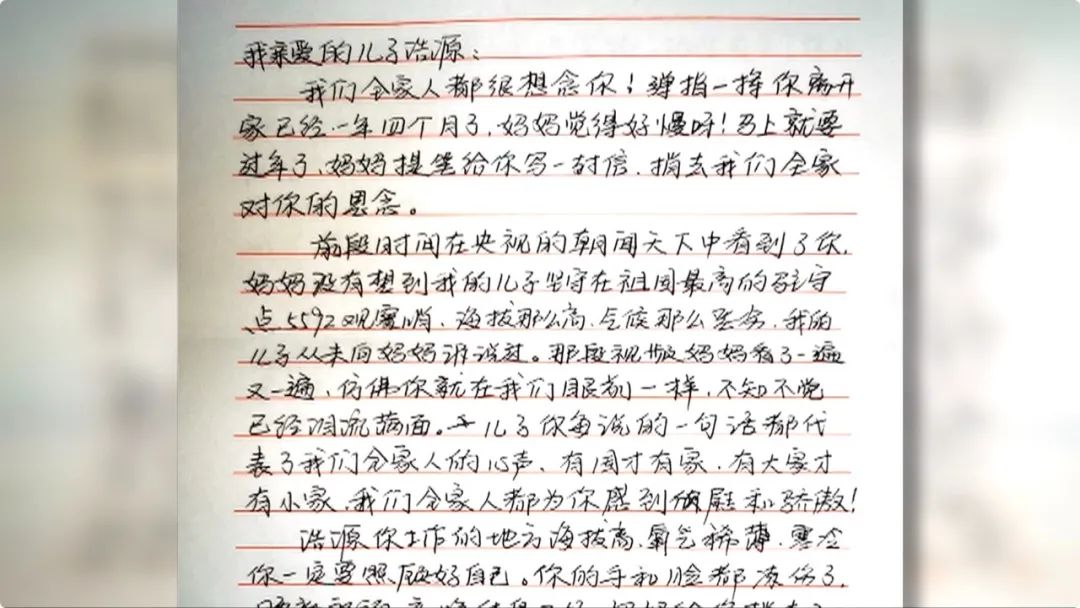 我亲爱的儿子浩源:
我们全家人都很想念你!弹指一挥你离开
家已经一年四个月了,妈妈觉得好慢呀!马上就要
过年了、妈妈提笔给你写一封信,捎去我们全家
对你的思念。
前段时间在央视的朝闻天下中看到了你,
妈妈没有想到我的儿子坚守在祖国最高的驻守
点5592观察哨、海拔那么高、气候那么恶劣,我的
儿子从未向妈妈诉说过。那段视频妈妈看了一遍
又一遍,仿佛你就在我们眼前一样,不知不觉
已经泪流满面。儿子你每说的一句话都代
表了我们全家人的心声、有国才有家,有大家才
有小家,我们全家人都为你感到欣慰和骄傲!
浩源你工作的地方海拔高,氧气稀薄,寒冷
你一定要照顾好自己。你的手和脸都冻伤了,